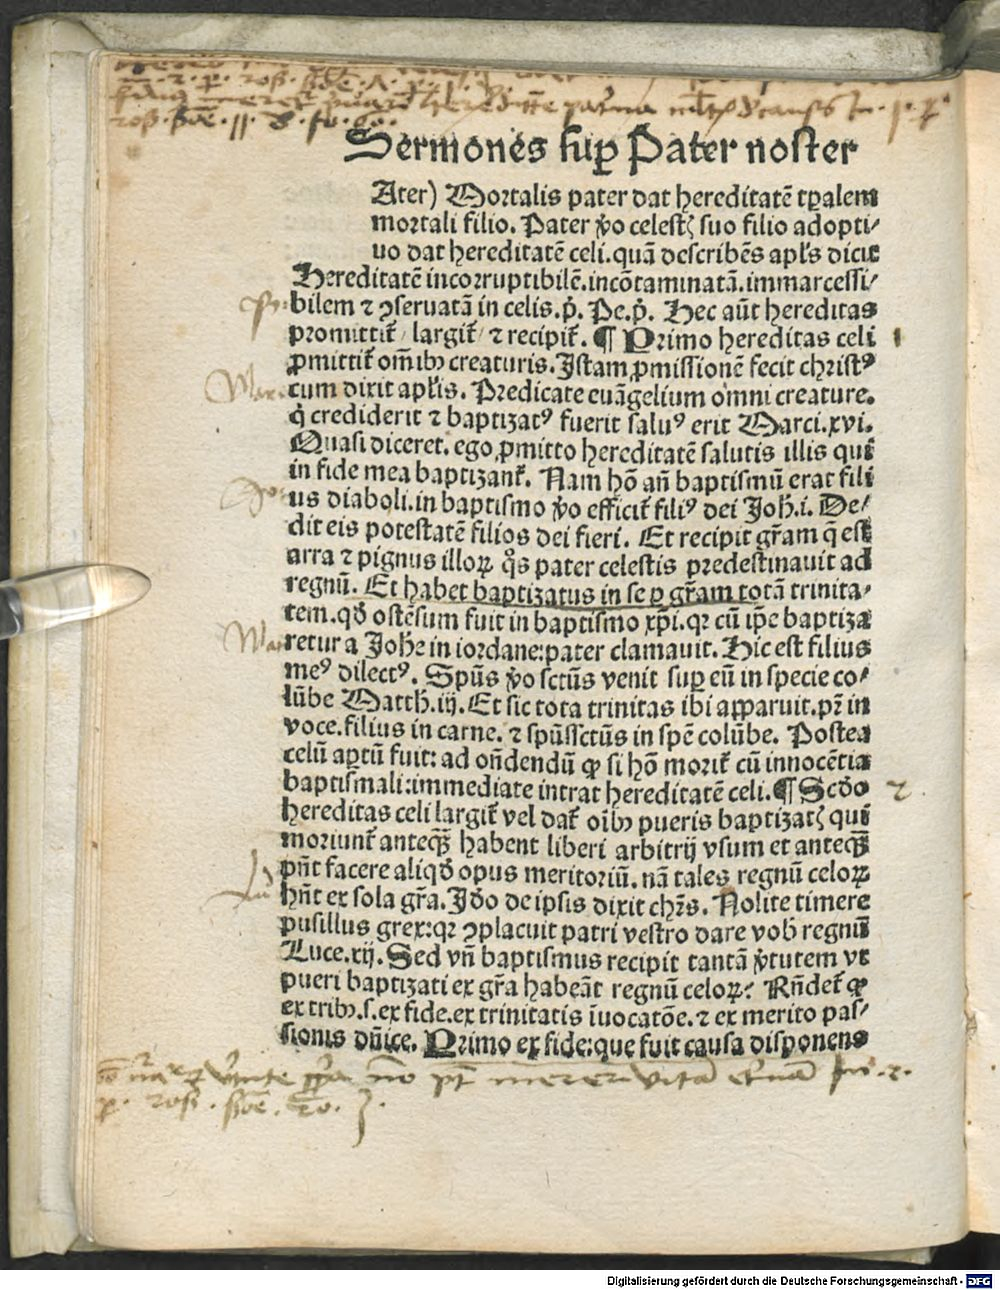 Sermones sup Pater noster
Ater) Mortalis pater dat hereditatē tpalem
mortali filio. Pater ṽo celestꝭ suo filio adopti⸗
uo dat hereditatē celi. quā describēs apl's dicit
Hereditatē incorruptibilē. incōtaminatā. immarcessi⸗
bilem ⁊ ꝯseruatā in celis. p̓. Pe. p̓. Hec aūt hereditas
promittit᷑ / largit᷑ / ⁊ recipit᷑. ¶ Primo hereditas celi
ꝓmittit᷑ om̄ibꝫ creaturis. Istam ꝓmissionē fecit christꝰ
cum dixit apl'is. Predicate euāgelium omni creature.
q̓ crediderit ⁊ baptizatꝰ fuerit saluꝰ erit Marci. xvi.
Quasi diceret. ego ꝓmitto hereditatē salutis illis qui
in fide mea baptizant᷑. Nam hō an̄ baptismū erat fili
us diaboli. in baptismo ṽo efficit᷑ filiꝰ dei Joh̄. i. De⸗
dit eis potestatē filios dei fieri. Et recipit gr̄am q̄ est
arra ⁊ pignus illoꝝ q̄s pater celestis predestinauit ad
regnū. Et habet baptizatus in se ꝑ gr̄am totā trinita⸗
tem. qd̓ ostēsum fuit in baptismo xp̄i. qꝛ cū ip̄e baptiza
retur a Joh̄e in iordane: pater clamauit. Hic est filius
meꝰ dilectꝰ. Spūs ṽo sctūs venit suꝑ eū in specie co⸗
lūbe Matth̄. iij. Et sic tota trinitas ibi apparuit. pr̄ in
voce. filius in carne. ⁊ spūssctūs in spē colūbe. Postea
celū aꝑtū fuit: ad on̄dendū ꝙ si hō morit᷑ cū innocētia
baptismali: immediate intrat hereditatē celi. ¶ Scd̓o
hereditas celi largit᷑ vel dat᷑ oībꝫ pueris baptizatꝭ qui
moriunt᷑ anteqꝫ̄ habent liberi arbitrij vsum et anteqꝫ̄
pn̄t facere aliqd̓ opus meritoriū. nā tales regnū celoꝝ
hn̄t ex sola gr̄a. Id̓o de ipsis dixit chr̄s. Nolite timere
pusillus grex: qꝛ ꝯplacuit patri vestro dare vob̄ regnū
Luce. xij. Sed vn̄ baptismus recipit tantā ṽtutem vt
pueri baptizati ex gr̄a habeāt regnū celoꝝ? Rn̄det᷑ ꝙ
ex tribꝫ. s. ex fide. ex trinitatis īuocatōe. ⁊ ex merito pas⸗
sionis dn̄ice. Primo ex fide: que fuit causa disponens
Digitalisierung gefördert durch die Deutsche Forschungsgemeinschaft - DFG